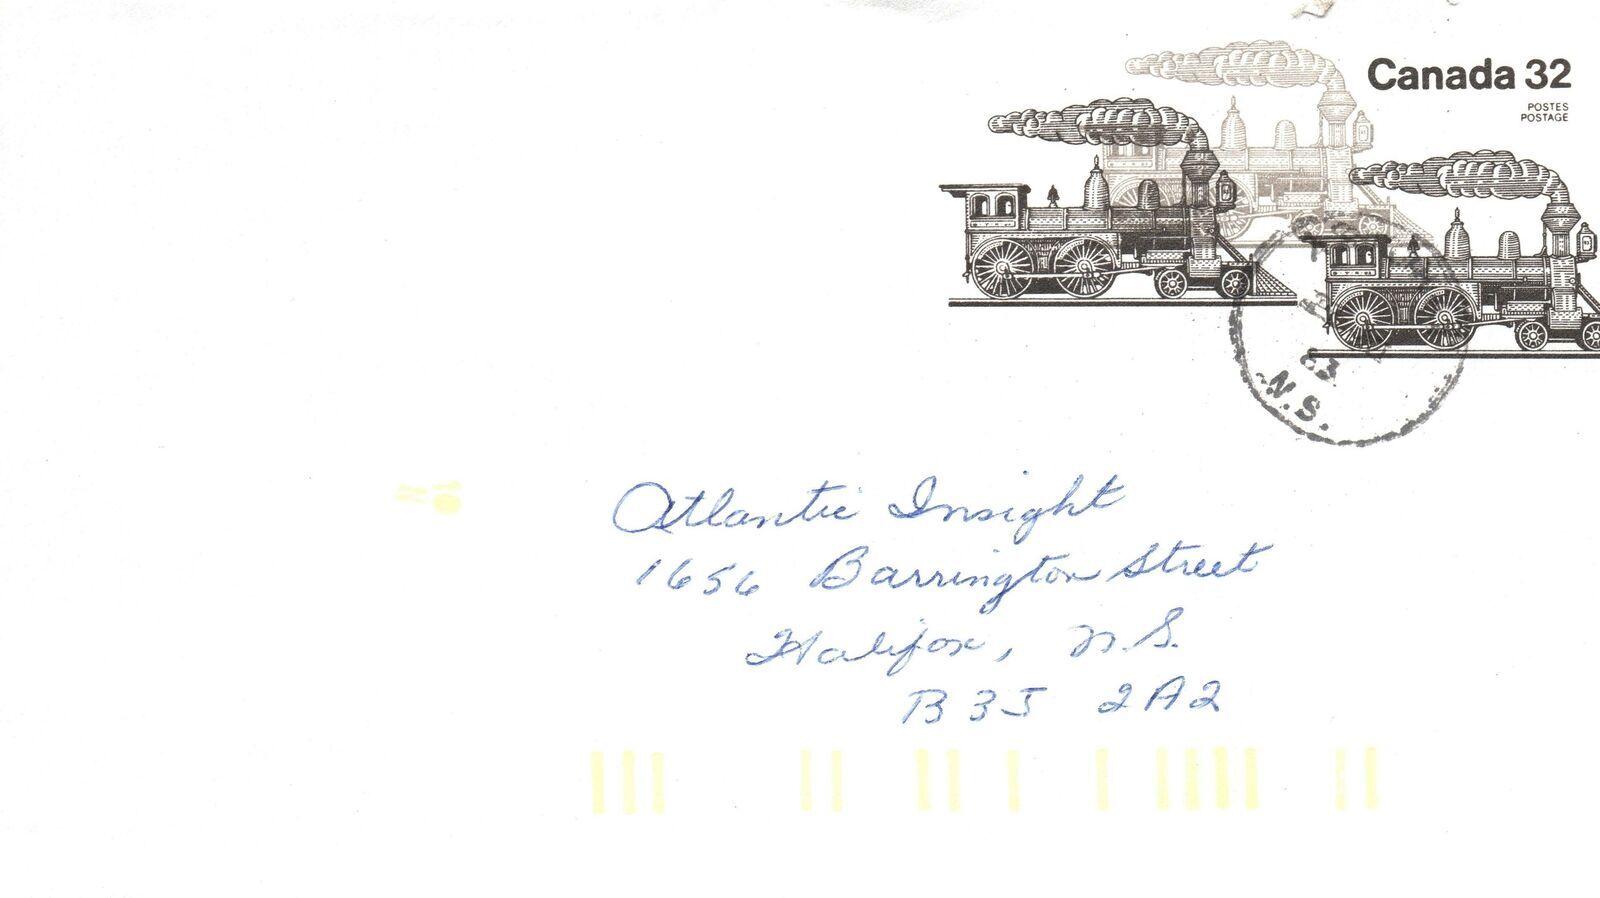 Canada 32
POSTES
POSTAGE
83
N.S.
Atlantic Insight
1656 Barrington Street
Halifax, N.S.
B3J 2A2